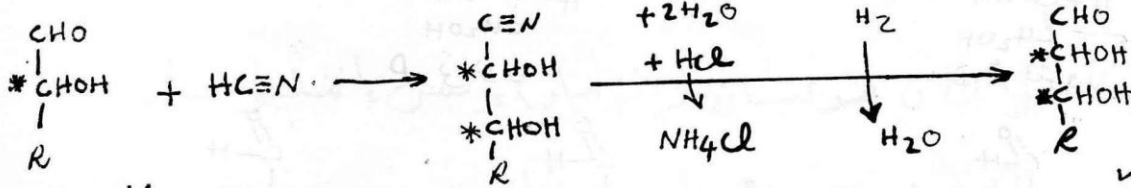 CHO
*CHOH
R
+ HC≡N
C≡N
*CHOH
*CHOH
R
+2H2O
+ HCl
NH4Cl
H2
H2O
CHO
*CHOH
*CHOH
R